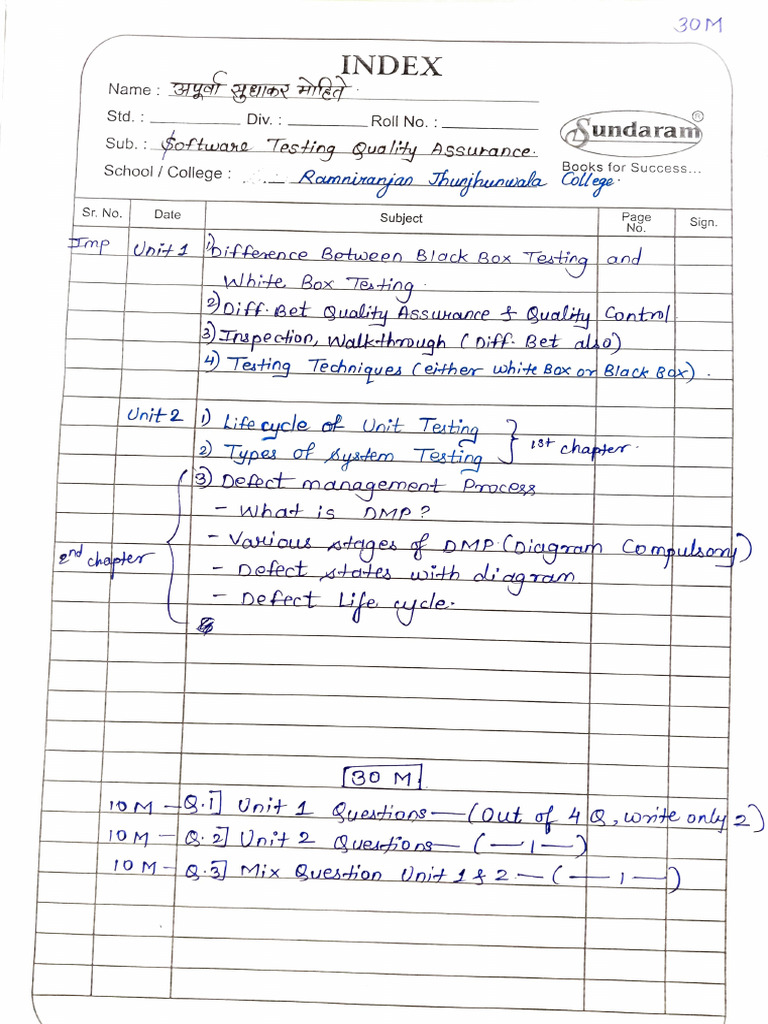 30M
INDEX
Name : अपूर्वा सुधाकर मोहिते.
Std. : Div. : Roll No. :
Sub. : Software Testing Quality Assurance.
Sundaram®
Books for Success...
School / College : Ramniranjan Jhunjhunwala College.
Sr. No. Date Subject Page No. Sign.
Imp Unit 1 1) Difference Between Black Box Testing and
White Box Testing.
2) Diff. Bet Quality Assurance & Quality Control
3) Inspection, Walkthrough (Diff. Bet also)
4) Testing Techniques (either white Box or Black Box).
Unit 2 1) Life cycle of Unit Testing
2) Types of System Testing } 1st chapter.
3) Defect management Process
- What is DMP?
- Various stages of DMP (Diagram Compulsory)
2nd chapter - Defect states with diagram
- Defect Life cycle.
30 M
10M - Q.1] Unit 1 Questions — (Out of 4 Q, write only 2)
10M - Q.2] Unit 2 Questions — ( — 1 — )
10M - Q.3] Mix Question Unit 1 & 2 — ( — 1 — )